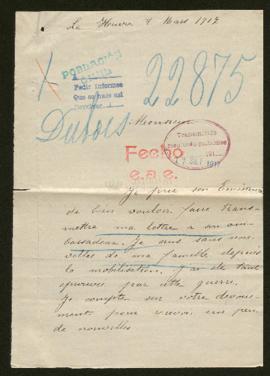 Le Havre 4 Mars 1917
POBLACIÓN
CIVIL
Pedir informes
Que no haía sui
22875
Dubois
Monsieur
Transmitido
1917
Fecho
e.a.e.
Je prie son
de bien vouloir faire trans-
mettre ma lettre a son am-
bassadeur. Je suis sans nou-
velles de ma famille depuis
la mobilisation, j'ai été tant
éprouvée par cette guerre.
Je compte sur votre dévoue-
ment pour avoir un peu
de nouvelles